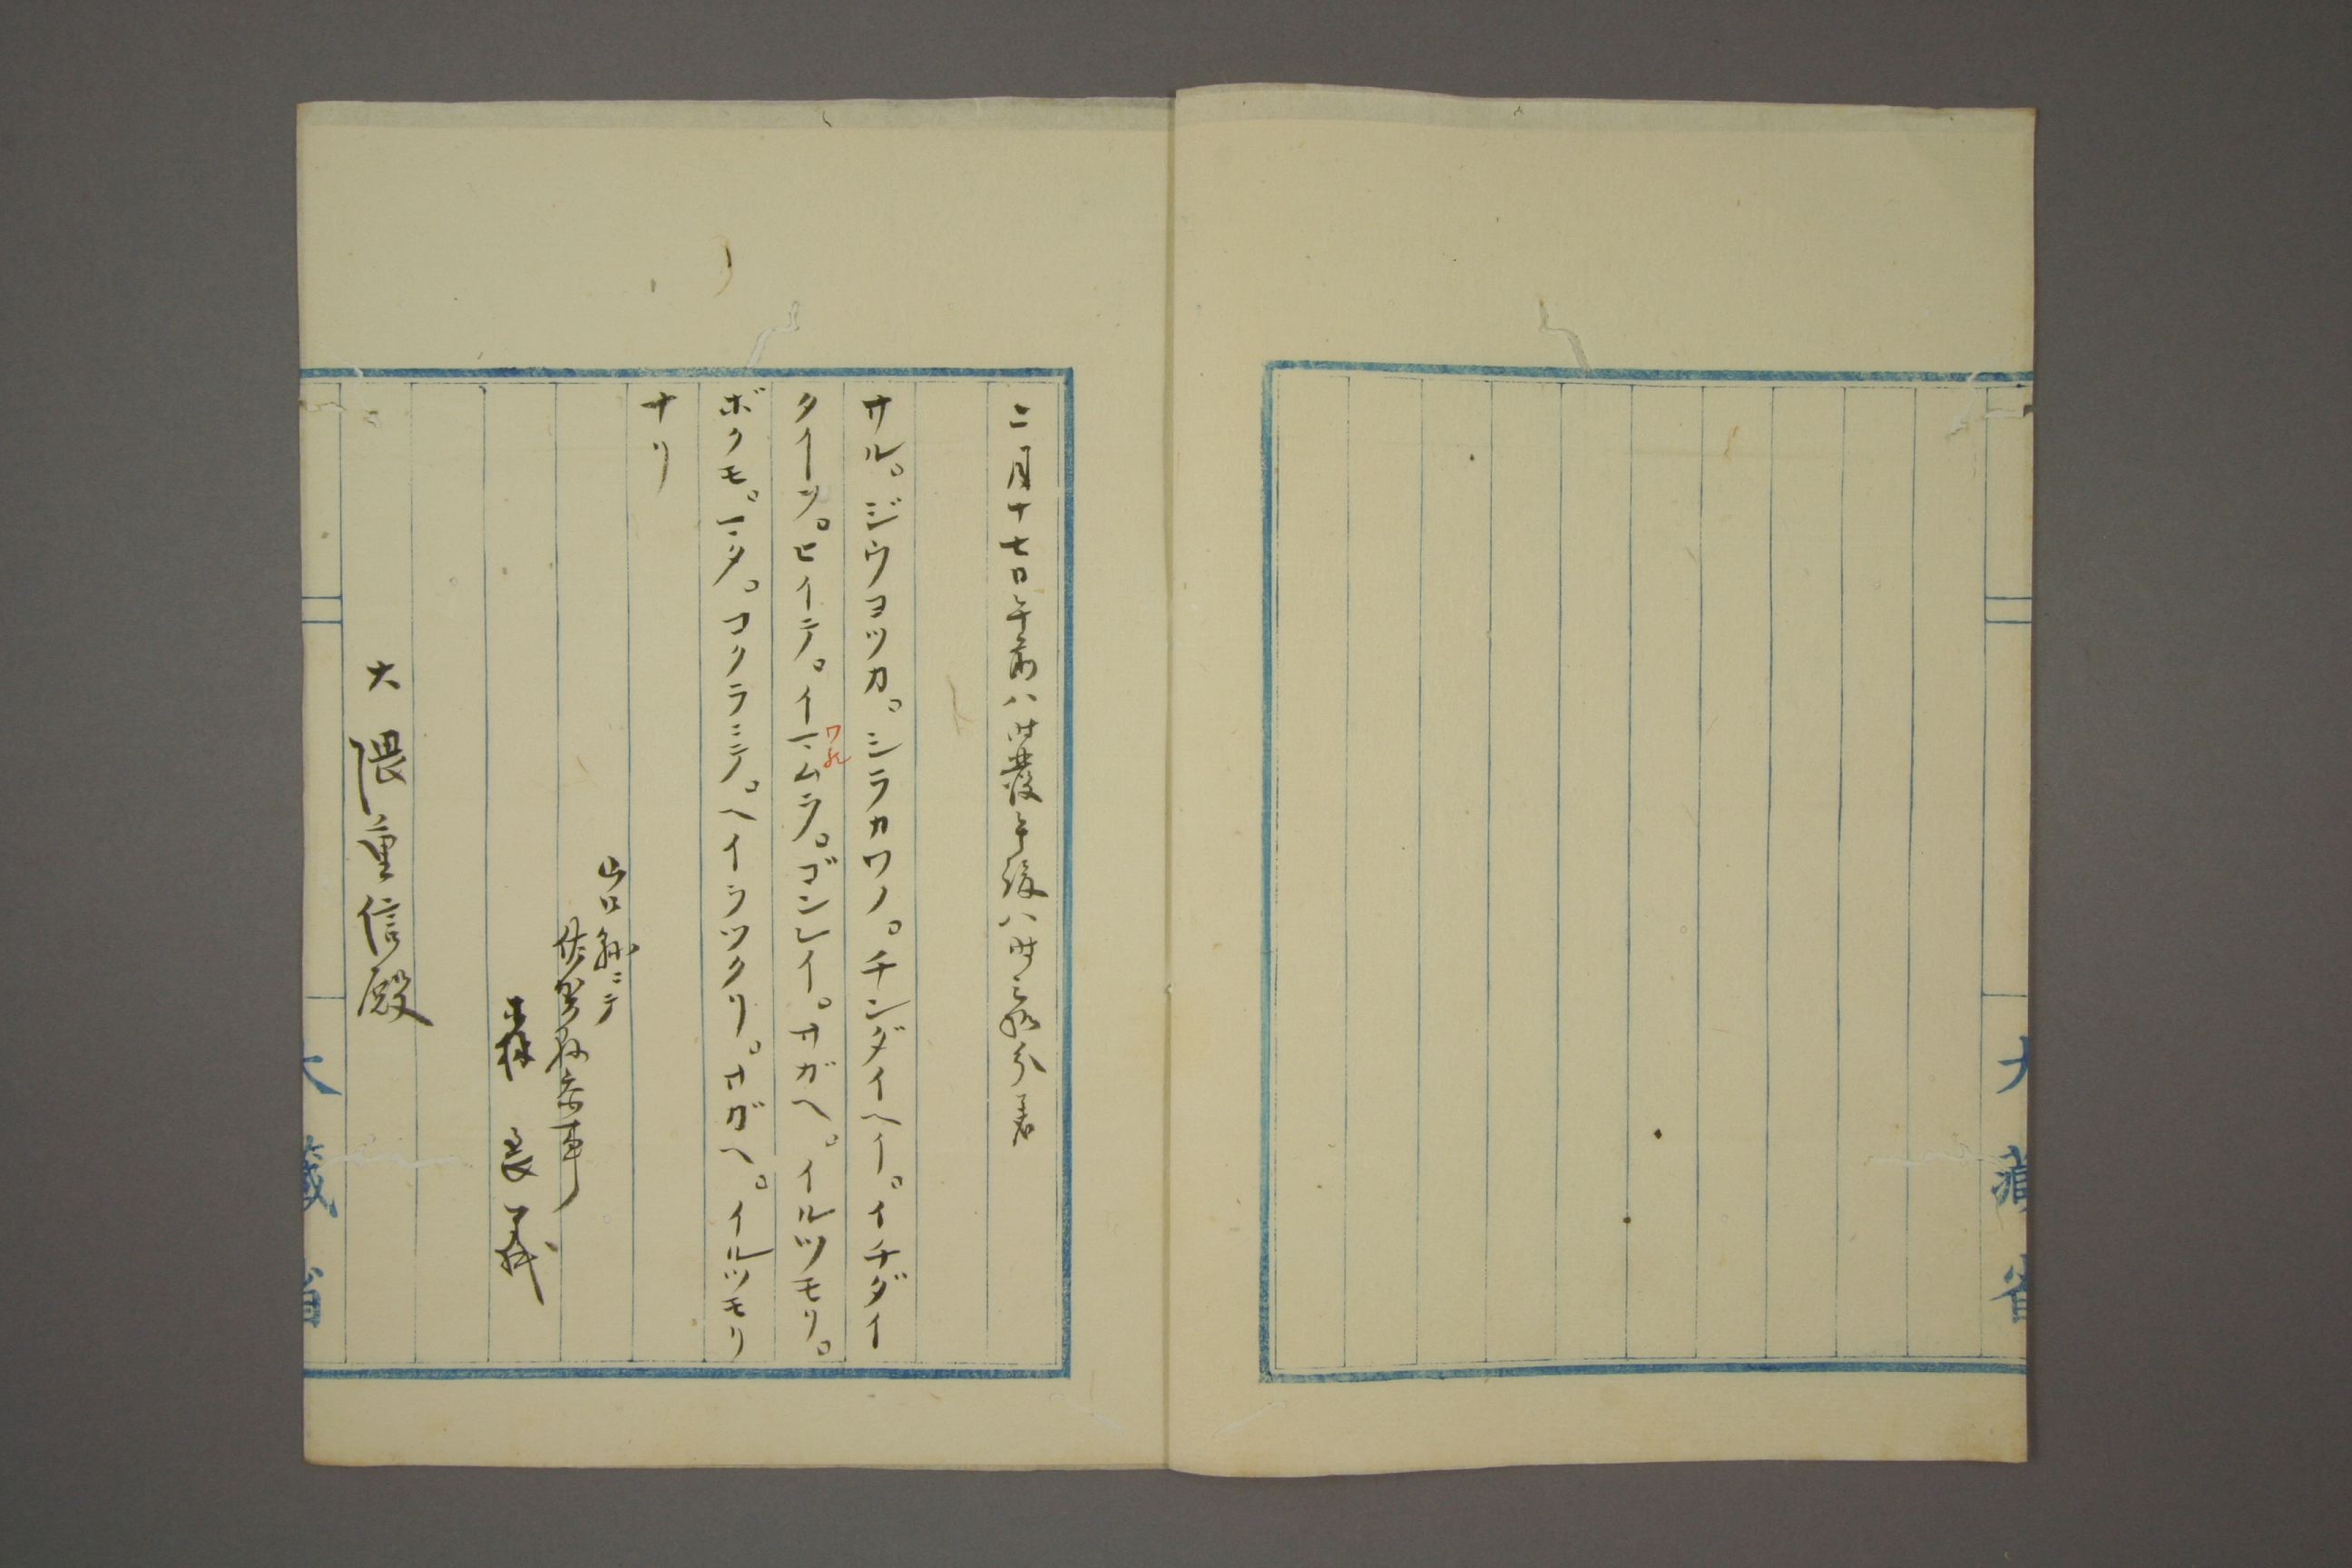 二月十七日午前八時發午後八時三拾分着
サル。ジウヨツカ。シラカワノ。チンダイヘイ。イチダイ
タイヲ。ヒイテ。イマムラ。ゴンレイ。サガヘ。イルツモリ。
ボクモ。マタ。コクラニテ。ヘイヲツクリ。サガヘ。イルツモリ
ナリ
山口縣ニテ
佐賀縣参事
森長義
大隈重信殿
大藏省